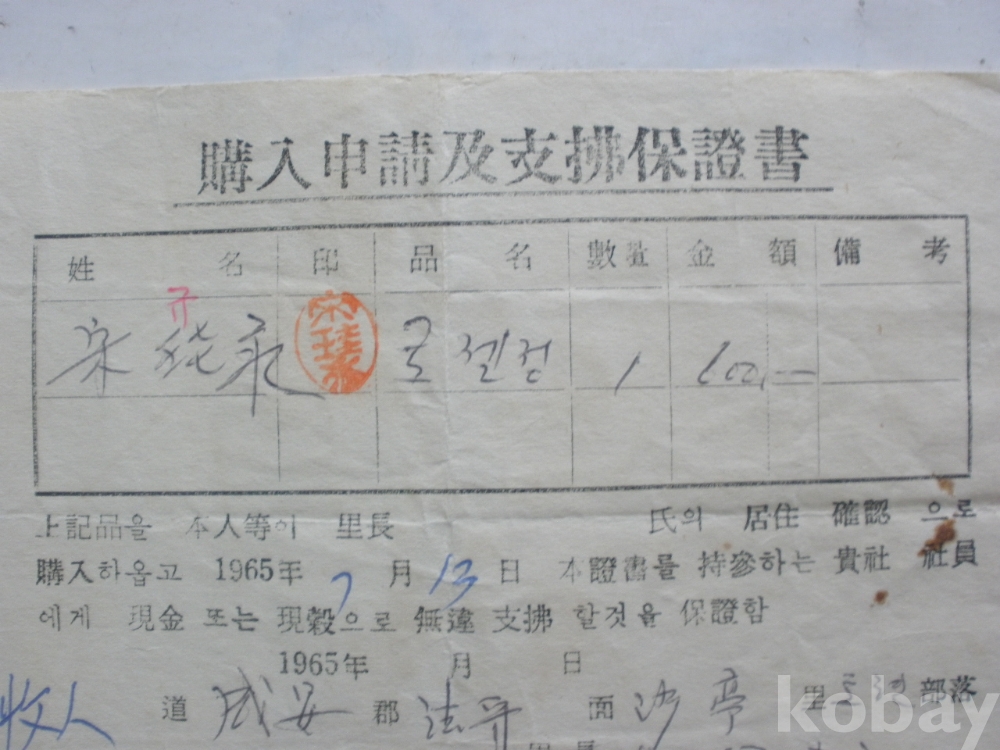 購入申請及支拂保證書
姓 名 印 品 名 數量 金 額 備 考
규
宋 1 600,—
上記品을 本人等이 里長 氏의 居住 確認 으로
購入하옵고 1965年 7 月 13 日 本證書를 持參하는 貴社 社員
에게 現金 또는 現穀으로 無違 支拂 할것을 保證함
1965年 月 日
收人 道 咸安 郡 法守 面 沙亭 里 部落
kobay